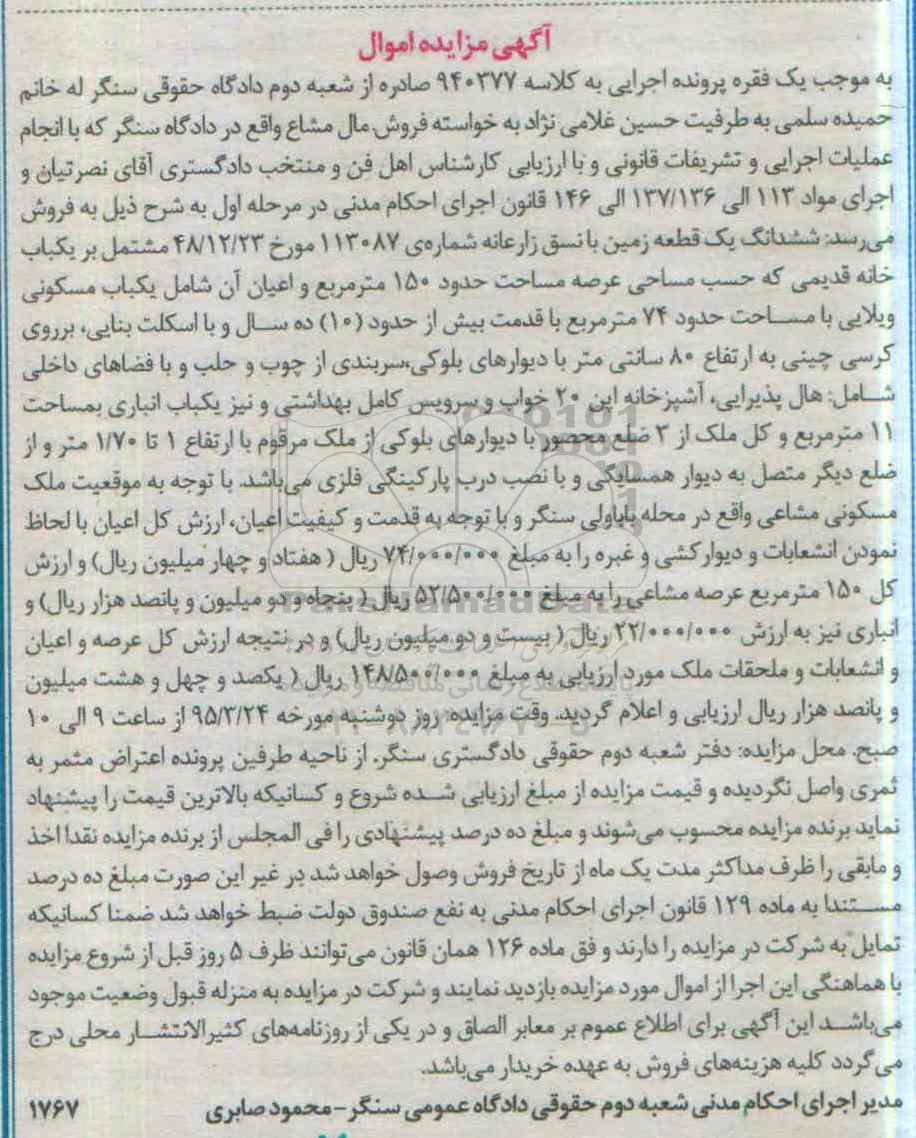 آگهی مزایده اموال
به موجب یک فقره پرونده اجرایی به کلاسه ۹۴۰۳۷۷ صادره از شعبه دوم دادگاه حقوقی سنگر له خانم
حمیده سلمی به طرفیت حسین غلامی نژاد به خواسته فروش مال مشاع واقع در دادگاه سنگر که با انجام
عملیات اجرایی و تشریفات قانونی و با ارزیابی کارشناس اهل فن و منتخب دادگستری آقای نصرتیان و
اجرای مواد ۱۱۳ الی ۱۳۷/۱۳۶ الی ۱۴۶ قانون اجرای احکام مدنی در مرحله اول به شرح ذیل به فروش
می‌رسد: ششدانگ یک قطعه زمین با نسق زارعانه شماره‌ی ۱۱۳۰۸۷ مورخ ۴۸/۱۲/۲۳ مشتمل بر یکباب
خانه قدیمی که حسب مساحی عرصه مساحت حدود ۱۵۰ مترمربع و اعیان آن شامل یکباب مسکونی
ویلایی با مساحت حدود ۷۴ مترمربع با قدمت بیش از حدود (۱۰) ده سال و با اسکلت بنایی، برروی
کرسی چینی به ارتفاع ۸۰ سانتی متر با دیوارهای بلوکی،سربندی از چوب و حلب و با فضاهای داخلی
شامل: هال پذیرایی، آشپزخانه اپن ۲۰ خواب و سرویس کامل بهداشتی و نیز یکباب انباری بمساحت
۱۱ مترمربع و کل ملک از ۳ ضلع محصور با دیوارهای بلوکی از ملک مرقوم با ارتفاع ۱ تا ۱/۷۰ متر و از
ضلع دیگر متصل به دیوار همسایگی و با نصب درب پارکینگی فلزی می‌باشد. با توجه به موقعیت ملک
مسکونی مشاعی واقع در محله باباولی سنگر و با توجه به قدمت و کیفیت اعیان، ارزش کل اعیان با لحاظ
نمودن انشعابات و دیوارکشی و غبره را به مبلغ ۷۴/۰۰۰/۰۰۰ ریال ( هفتاد و چهار میلیون ریال) و ارزش
کل ۱۵۰ مترمربع عرصه مشاعی را به مبلغ ۵۲/۵۰۰/۰۰۰ ریال ( پنجاه و دو میلیون و پانصد هزار ریال) و
انباری نیز به ارزش ۲۲/۰۰۰/۰۰۰ ریال ( بیست و دو میلیون ریال) و در نتیجه ارزش کل عرصه و اعیان
و انشعابات و ملحقات ملک مورد ارزیابی به مبلغ ۱۴۸/۵۰۰/۰۰۰ ریال ( یکصد و چهل و هشت میلیون
و پانصد هزار ریال ارزیابی و اعلام گردید. وقت مزایده: روز دوشنبه مورخه ۹۵/۳/۲۴ از ساعت ۹ الی ۱۰
صبح. محل مزایده: دفتر شعبه دوم حقوقی دادگستری سنگر. از ناحیه طرفین پرونده اعتراض مثمر به
ثمری واصل نگردیده و قیمت مزایده از مبلغ ارزیابی شده شروع و کسانیکه بالاترین قیمت را پیشنهاد
نماید برنده مزایده محسوب می‌شوند و مبلغ ده درصد پیشنهادی را فی المجلس از برنده مزایده نقدا اخذ
و مابقی را ظرف مداکثر مدت یک ماه از تاریخ فروش وصول خواهد شد در غیر این صورت مبلغ ده درصد
مستندا به ماده ۱۲۹ قانون اجرای احکام مدنی به نفع صندوق دولت ضبط خواهد شد ضمنا کسانیکه
تمایل به شرکت در مزایده را دارند و فق ماده ۱۲۶ همان قانون می‌توانند ظرف ۵ روز قبل از شروع مزایده
با هماهنگی این اجرا از اموال مورد مزایده بازدید نمایند و شرکت در مزایده به منزله قبول وضعیت موجود
می‌باشد این آگهی برای اطلاع عموم بر معابر الصاق و در یکی از روزنامه‌های کثیرالانتشار محلی درج
می‌گردد کلیه هزینه‌های فروش به عهده خریدار می‌باشد.
مدیر اجرای احکام مدنی شعبه دوم حقوقی دادگاه عمومی سنگر – محمود صابری
۱۷۶۷